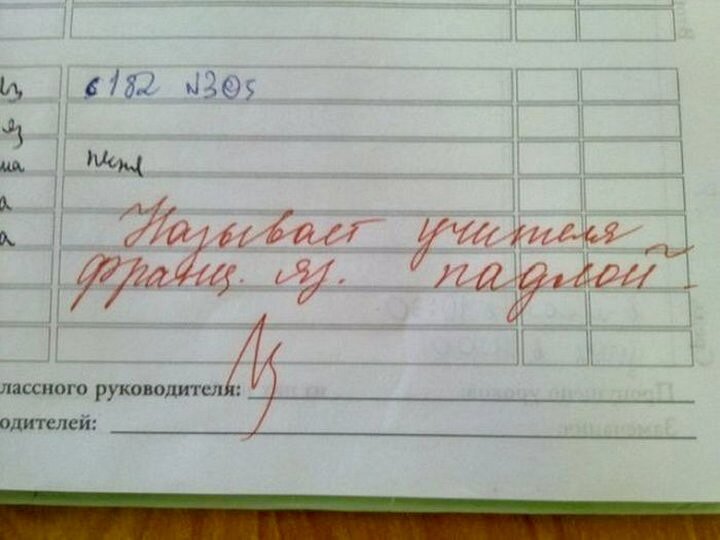 с 182 №305
яз
пения
Называет учителя
франц. яз. падлой.
лассного руководителя:
одителей: